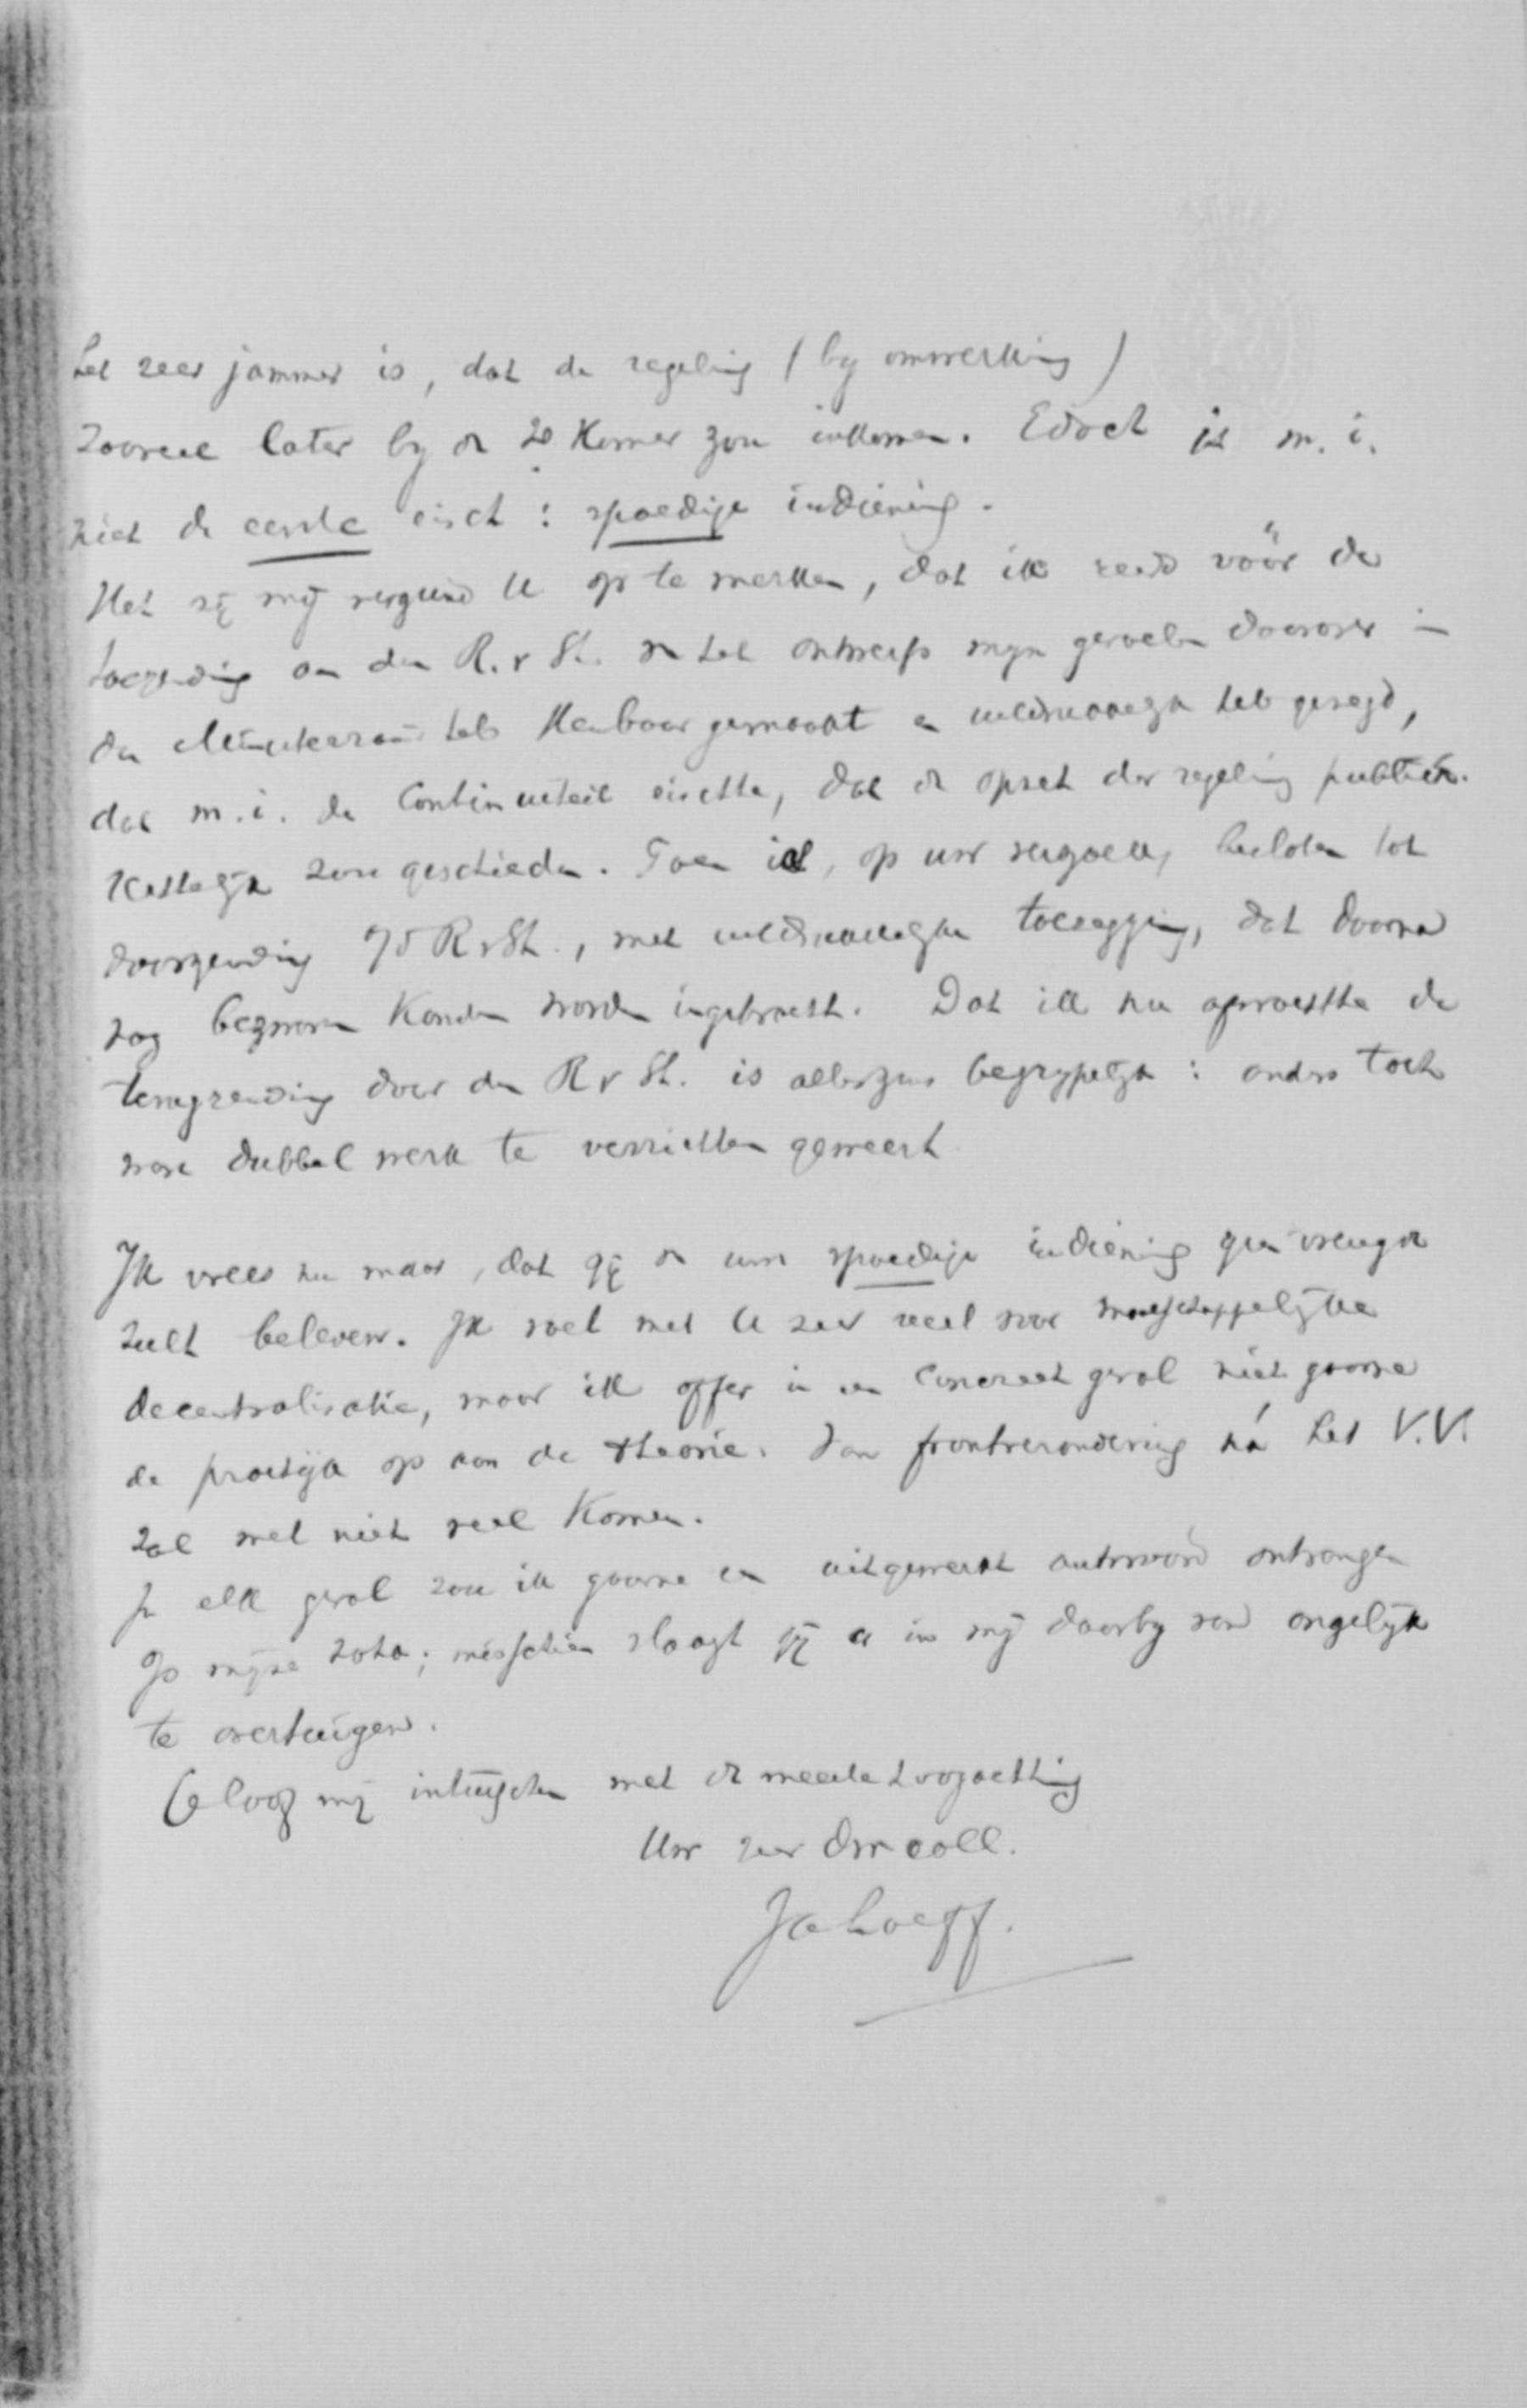 het zeer jammer is, dat de regeling (by omwerking)
zooveel later by de 2e Kamer zou inkomen. Edoch is m.i.
niet de eerste eisch: spoedige indiening.
Het zij mij vergund U op te merken, dat ik reeds vóór de
toezending aan den R. v St. van het ontwerp mijn gevoelen daarover in
den Ministerraad heb kenbaar gemaakt en uitdrukkelijk heb gezegd,
dat m.i. de continuiteit eischte, dat de opzet der regeling publiek-
rechtelijk zou geschieden. Toen ik, op uw verzoek, besloten tot
doorzending R v St., met uitdrukkelijke toezegging, dat daarna
nog bezwaren konden worden ingebracht. Dat ik nu opwachtte de
terugzending door den R v St. is alleszins begrypelijk: anders toch
ware dubbel werk te verrichten geweest
Ik vrees nu maar, dat gij van uw spoedige indiening geen vreugde
zult beleven. Ik voel met U zeer veel voor maatschappelijke
decentralisatie, maar ik offer in een concreet geval niet gaarne
de practijk op aan de theorie. Van frontverandering ná het V.V.
zal wel niet veel komen.
In elk geval zou ik gaarne een uitgewerkt antwoord ontvangen
op mijne nota; misschien slaagt gij er in mij daarby van ongelijk
te overtuigen.
Geloof mij intusschen met de meeste hoogachting
Uw zeer dw coll.
JA Loeff.